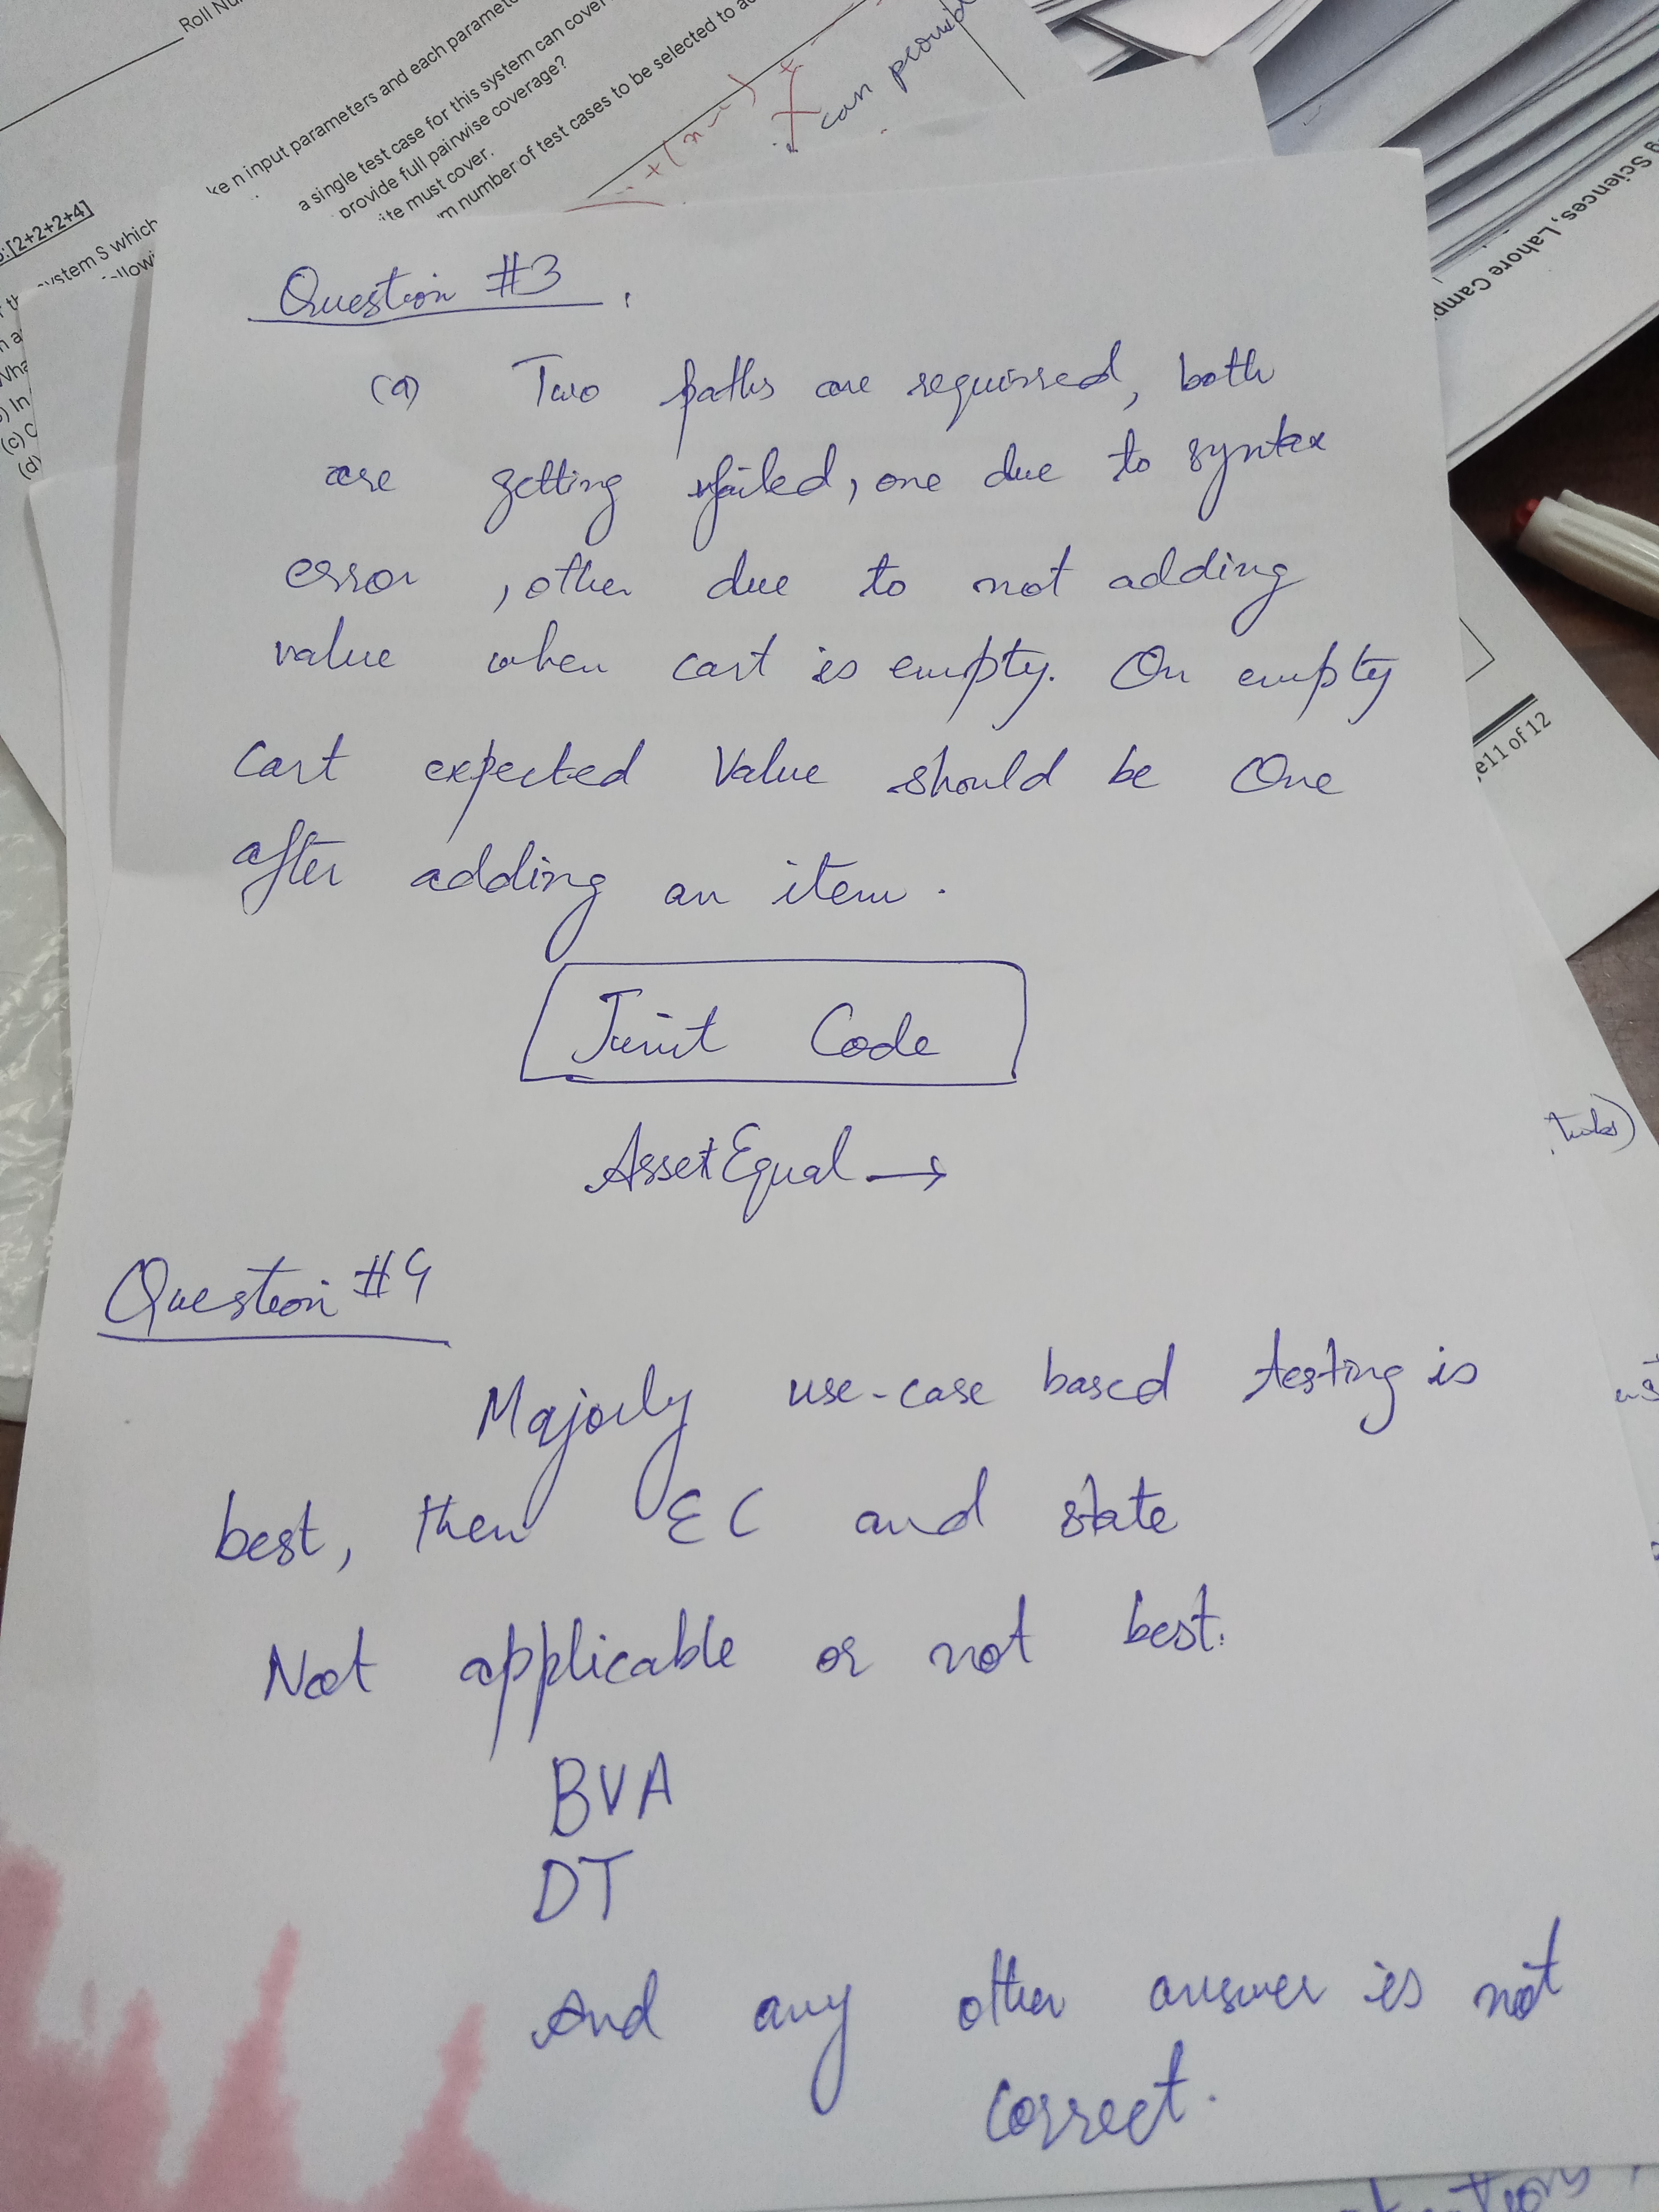 Roll Nu
ke n input parameters and each paramet
a single test case for this system can cover
provide full pairwise coverage?
ite must cover.
m number of test cases to be selected to a
:[2+2+2+4]
ystem S which
(c) C
(d)
can
g Sciences, Lahore Camp
Question #3
(a) Two paths are required, both
are getting failed, one due to syntax
error , other due to not adding
value when cart is empty. On empty
Cart expected Value should be One
after adding an item.
Junit Code
AssetEqual →
e11 of 12
Question #4
Majorly use-case based testing is
best, then EC and state
Not applicable or not best.
BVA
DT
And any other answer is not
correct.